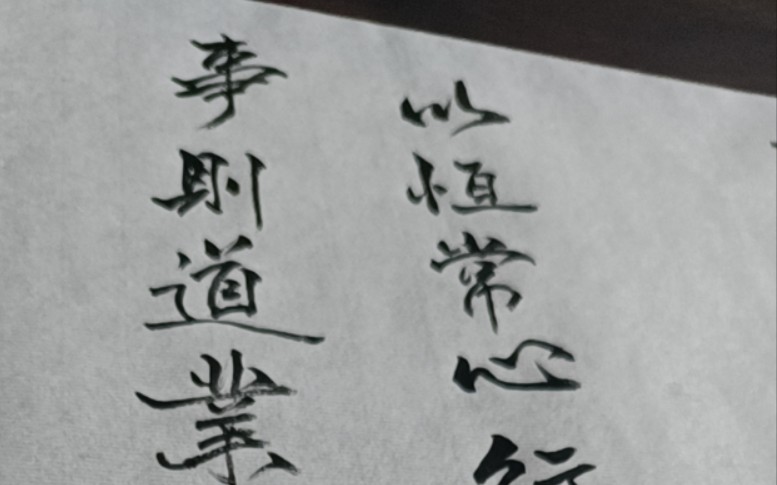 以恒常心行
事則道業